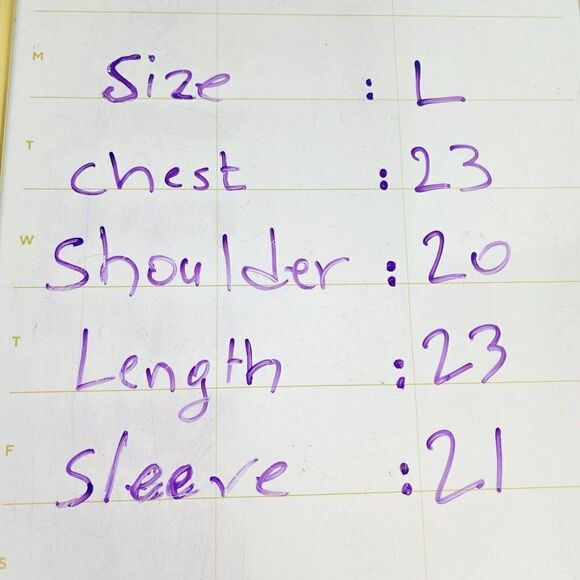 M
Size : L
T
chest : 23
W
Shoulder : 20
T
Length : 23
F
Sleeve : 21
S